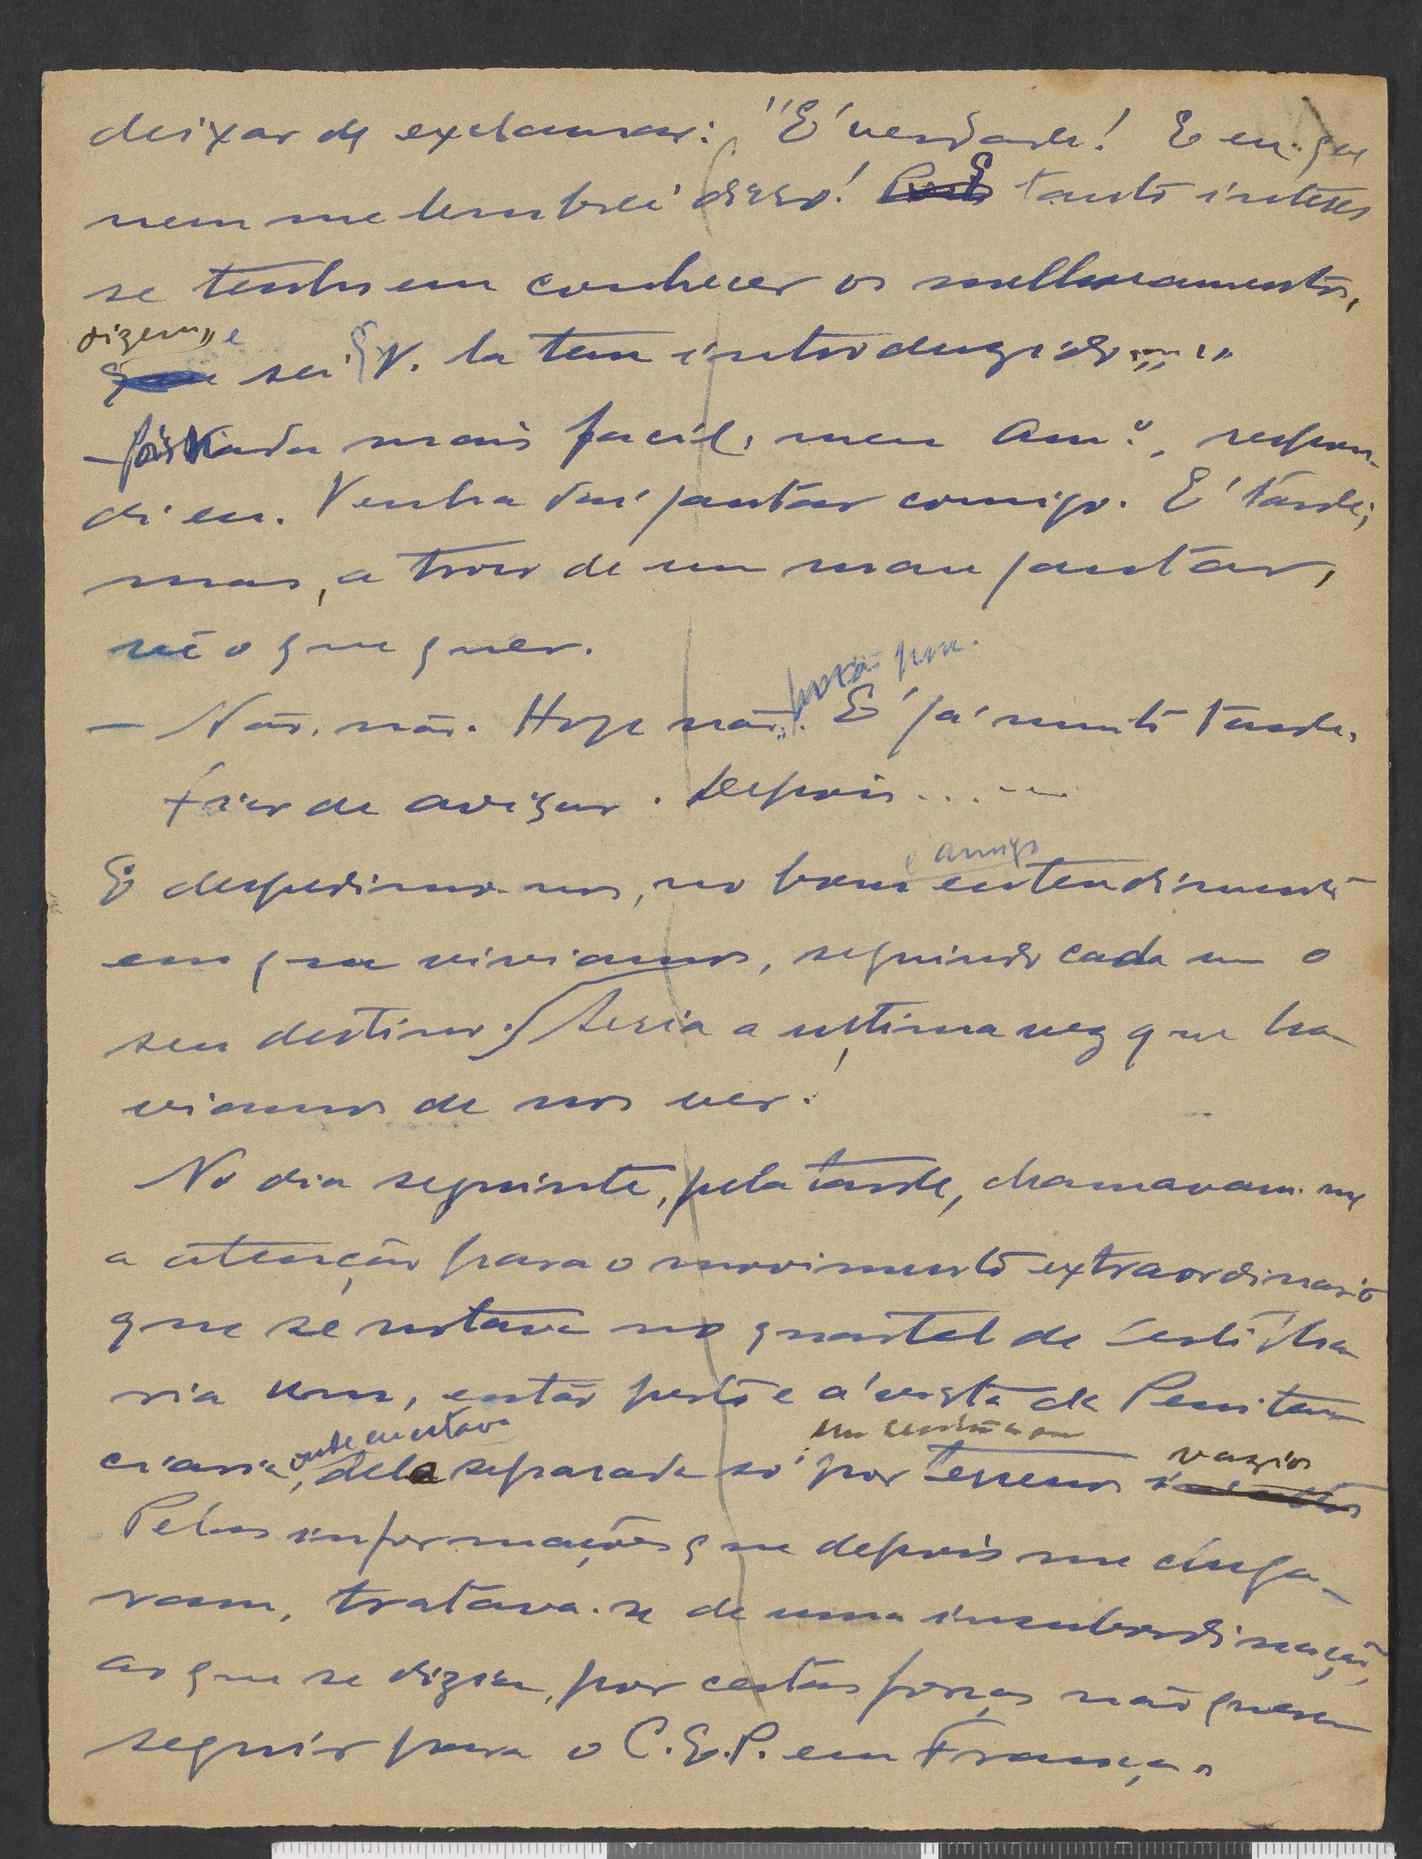 deixar de exclamar: "É verdade! E eu que
nem me lembrei disso! E tanto interes
se tenho em conhecer os melhoramentos,
dizem e
sei q V. la tem introduzido..."
- Pois nada mais facil, meu Am.º, respon-
di eu. Venha daí jantar comigo. É tarde;
mas, a troco de um mau jantar,
vê o que quer.
- Não, não. Hoje não... É já muito tarde.
Hei de avisar. Depois.....
o amigo
E despedimo-nos, no bom entendimento
em que viviamos, seguindo cada um o
seu destino. Seria a ultima vez que ha-
viamos de nos ver!
No dia seguinte, pela tarde, chamavam-me
a atenção para o movimento extraordinario
que se notava no quartel de
ria um, então perto e á vista da Peniten
onde eu estava
vazios
ciaria, dela separada só por terrenos
Pelas informações que depois me chega-
ram, tratava-se de uma insubordinação,
ao que se dizia, por certas forças não querem
seguir para o C.E.P. em França.